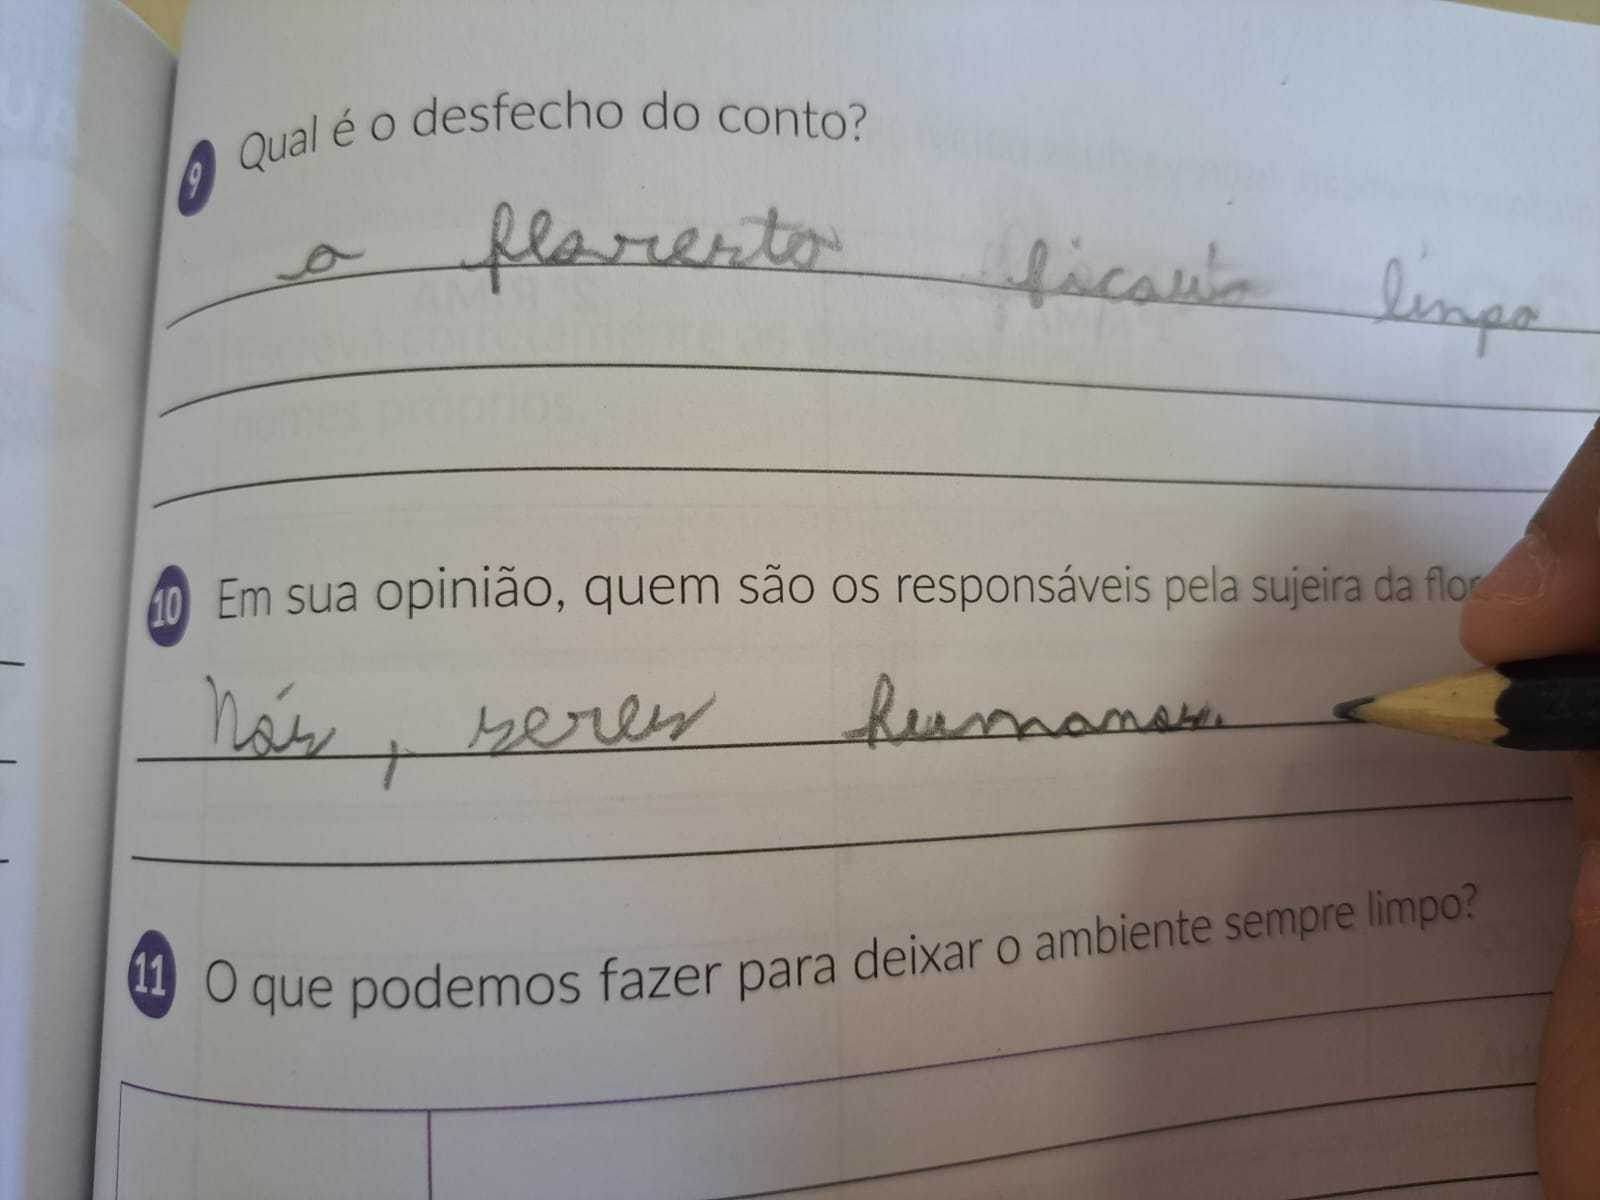 9 Qual é o desfecho do conto?
a floresta limpa
10 Em sua opinião, quem são os responsáveis pela sujeira da flor
Nós, seres humanos.
11 O que podemos fazer para deixar o ambiente sempre limpo?